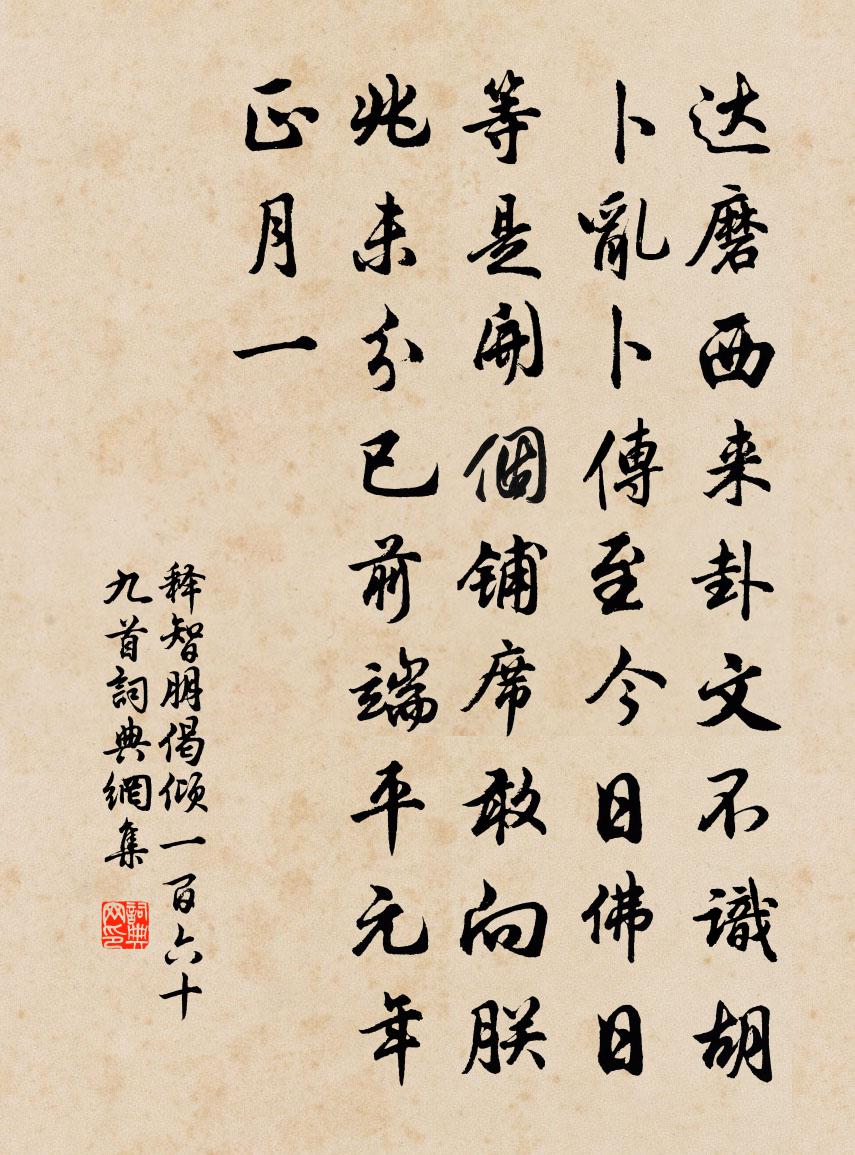 达磨西来卦文不識胡
卜亂卜傳至今日佛日
等是開個鋪席敢向朕
兆未分已前端平元年
正月一
释智朋偈倾一百六十
九首詞典網集
詞典
网印